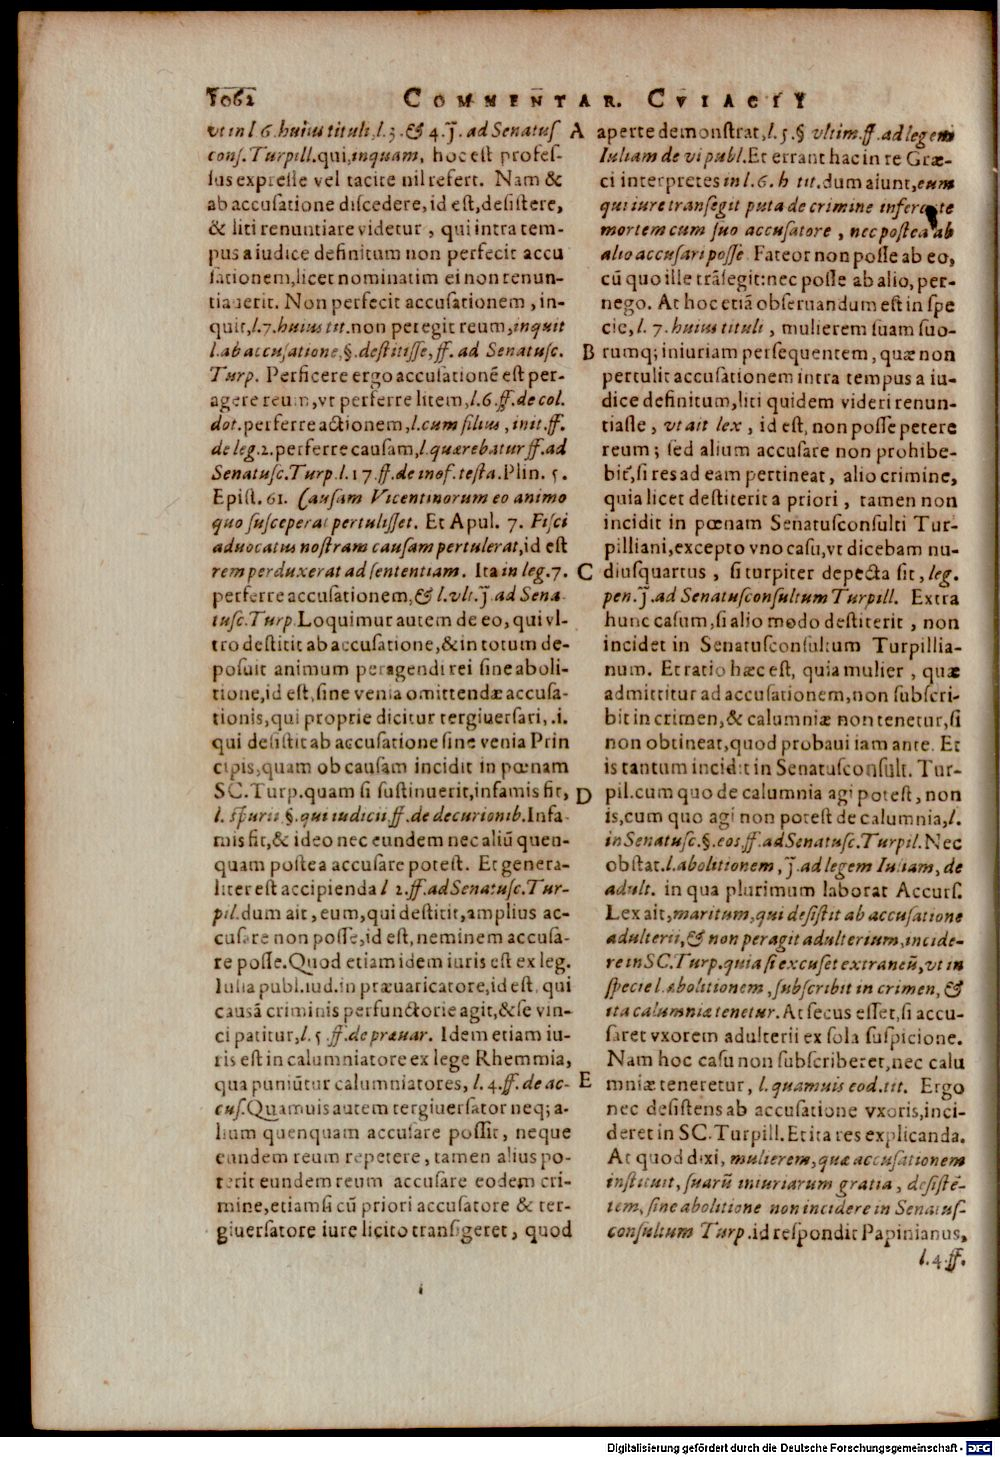 1062
COMMENTAR. CVIACII
vt in l 6. huius tituli, l. 3. & 4. ʃ. ad Senatuſ
conſ. Turpill. qui, inquam, hoc eſt profeſ-
ſus expreſſe vel tacite nil refert. Nam &
ab accuſatione diſcedere, id eſt, deſiſtere,
& liti renuntiare videtur, qui intra tem-
pus a iudice definitum non perfecit accu
ſationem, licet nominatim ei non renun-
tiauerit. Non perfecit accuſationem, in-
quit, l. 7. huius tit. non peregit reum, inquit
l. ab accuſatione, §. deſtitiſſe, ff. ad Senatuſc.
Turp. Perficere ergo accuſationē eſt per-
agere reum, vt perferre litem, l. 6. ff. de col.
dot. perferre actionem, l. cum filius, init. ff.
de leg. 2. perferre cauſam, l. quærebatur ff. ad
Senatuſc. Turp. l. 17. ff. de inof. teſta. Plin. 5.
Epiſt. 61. Cauſam Vicentinorum eo animo
quo ſuſceperat pertuliſſet. Et Apul. 7. Fiſci
aduocatus noſtram cauſam pertulerat, id eſt
rem perduxerat ad ſententiam. Ita in leg. 7.
perferre accuſationem, & l. vlt. ʃ. ad Sena-
tuſc. Turp. Loquimur autem de eo, qui vl-
tro deſtitit ab accuſatione, & in totum de-
poſuit animum peragendi rei ſine aboli-
tione, id eſt, ſine venia omittendæ accuſa-
tionis, qui proprie dicitur tergiuerſari, .i.
qui deſiſtit ab accuſatione ſine venia Prin
cipis, quam ob cauſam incidit in pœnam
SC. Turp. quam ſi ſuſtinuerit, infamis fit,
l. ſpurii §. qui iudicii, ff. de decurionib. Infa-
mis fit, & ideo nec eundem nec aliū quen-
quam poſtea accuſare poteſt. Et genera-
liter eſt accipienda l 2. ff. ad Senatuſc. Tur-
pil. dum ait, eum, qui deſtitit, amplius ac-
cuſare non poſſe, id eſt, neminem accuſa-
re poſſe. Quod etiam idem iuris eſt ex leg.
Iulia publ. iud. in præuaricatore, id eſt, qui
cauſā criminis perfunctorie agit, & ſe vin-
ci patitur, l. 5 ff. de præuar. Idem etiam iu-
ris eſt in calumniatore ex lege Rhemmia,
qua puniūtur calumniatores, l. 4. ff. de ac-
cuſ. Quamuis autem tergiuerſator neq; a-
lium quenquam accuſare poſſit, neque
eundem reum repetere, tamen alius po-
terit eundem reum accuſare eodem cri-
mine, etiamſi cū priori accuſatore & ter-
giuerſatore iure licito tranſigeret, quod
A
B
C
D
E
aperte demonſtrat, l. 5. § vltim. ff. ad legem
Iuliam de vi publ. Et errant hac in re Græ-
ci interpretes in l. 6. h tit. dum aiunt, eum
qui iure tranſegit puta de crimine inferente
mortem cum ſuo accuſatore, nec poſtea ab
alio accuſari poſſe. Fateor non poſſe ab eo,
cū quo ille trāſegit: nec poſſe ab alio, per-
nego. At hoc etiā obſeruandum eſt in ſpe
cie, l. 7. huius tituli, mulierem ſuam ſuo-
rumq; iniuriam perſequentem, quæ non
pertulit accuſationem intra tempus a iu-
dice definitum, liti quidem videri renun-
tiaſſe, vt ait lex, id eſt, non poſſe petere
reum; ſed alium accuſare non prohibe-
bit, ſi res ad eam pertineat, alio crimine,
quia licet deſtiterit a priori, tamen non
incidit in pœnam Senatuſconſulti Tur-
pilliani, excepto vno caſu, vt dicebam nu-
diuſquartus, ſi turpiter depecta ſit, leg.
pen. ʃ. ad Senatuſconſultum Turpill. Extra
hunc caſum, ſi alio modo deſtiterit, non
incidet in Senatuſconſultum Turpillia-
num. Et ratio hæc eſt, quia mulier, quæ
admittitur ad accuſationem, non ſubſcri-
bit in crimen, & calumniæ non tenetur, ſi
non obtineat, quod probaui iam ante. Et
is tantum incidit in Senatuſconſult. Tur-
pil. cum quo de calumnia agi poteſt, non
is, cum quo agi non poteſt de calumnia, l.
in Senatuſc. §. eos ff. ad Senatuſc. Turpil. Nec
obſtat. l. abolitionem, ʃ. ad legem Iuliam, de
adult. in qua plurimum laborat Accurſ.
Lex ait, maritum, qui deſiſtit ab accuſatione
adulterii, & non peragit adulterium, incide-
re in SC. Turp. quia ſi excuſet extraneū, vt in
ſpecie l. abolitionem, ſubſcribit in crimen, &
ita calumniæ tenetur. At ſecus eſſet, ſi accu-
ſaret vxorem adulterii ex ſola ſuſpicione.
Nam hoc caſu non ſubſcriberet, nec calu
mniæ teneretur, l. quamuis eod. tit. Ergo
nec deſiſtens ab accuſatione vxoris, inci-
deret in SC. Turpill. Et ita res explicanda.
At quod dixi, mulierem, quæ accuſationem
inſtituit, ſuarū iniuriarum gratia, deſiſtē-
tem, ſine abolitione non incidere in Senatuſ-
conſultum Turp. id reſpondit Papinianus,
l. 4. ff.
Digitalisierung gefördert durch die Deutsche Forschungsgemeinschaft - DFG